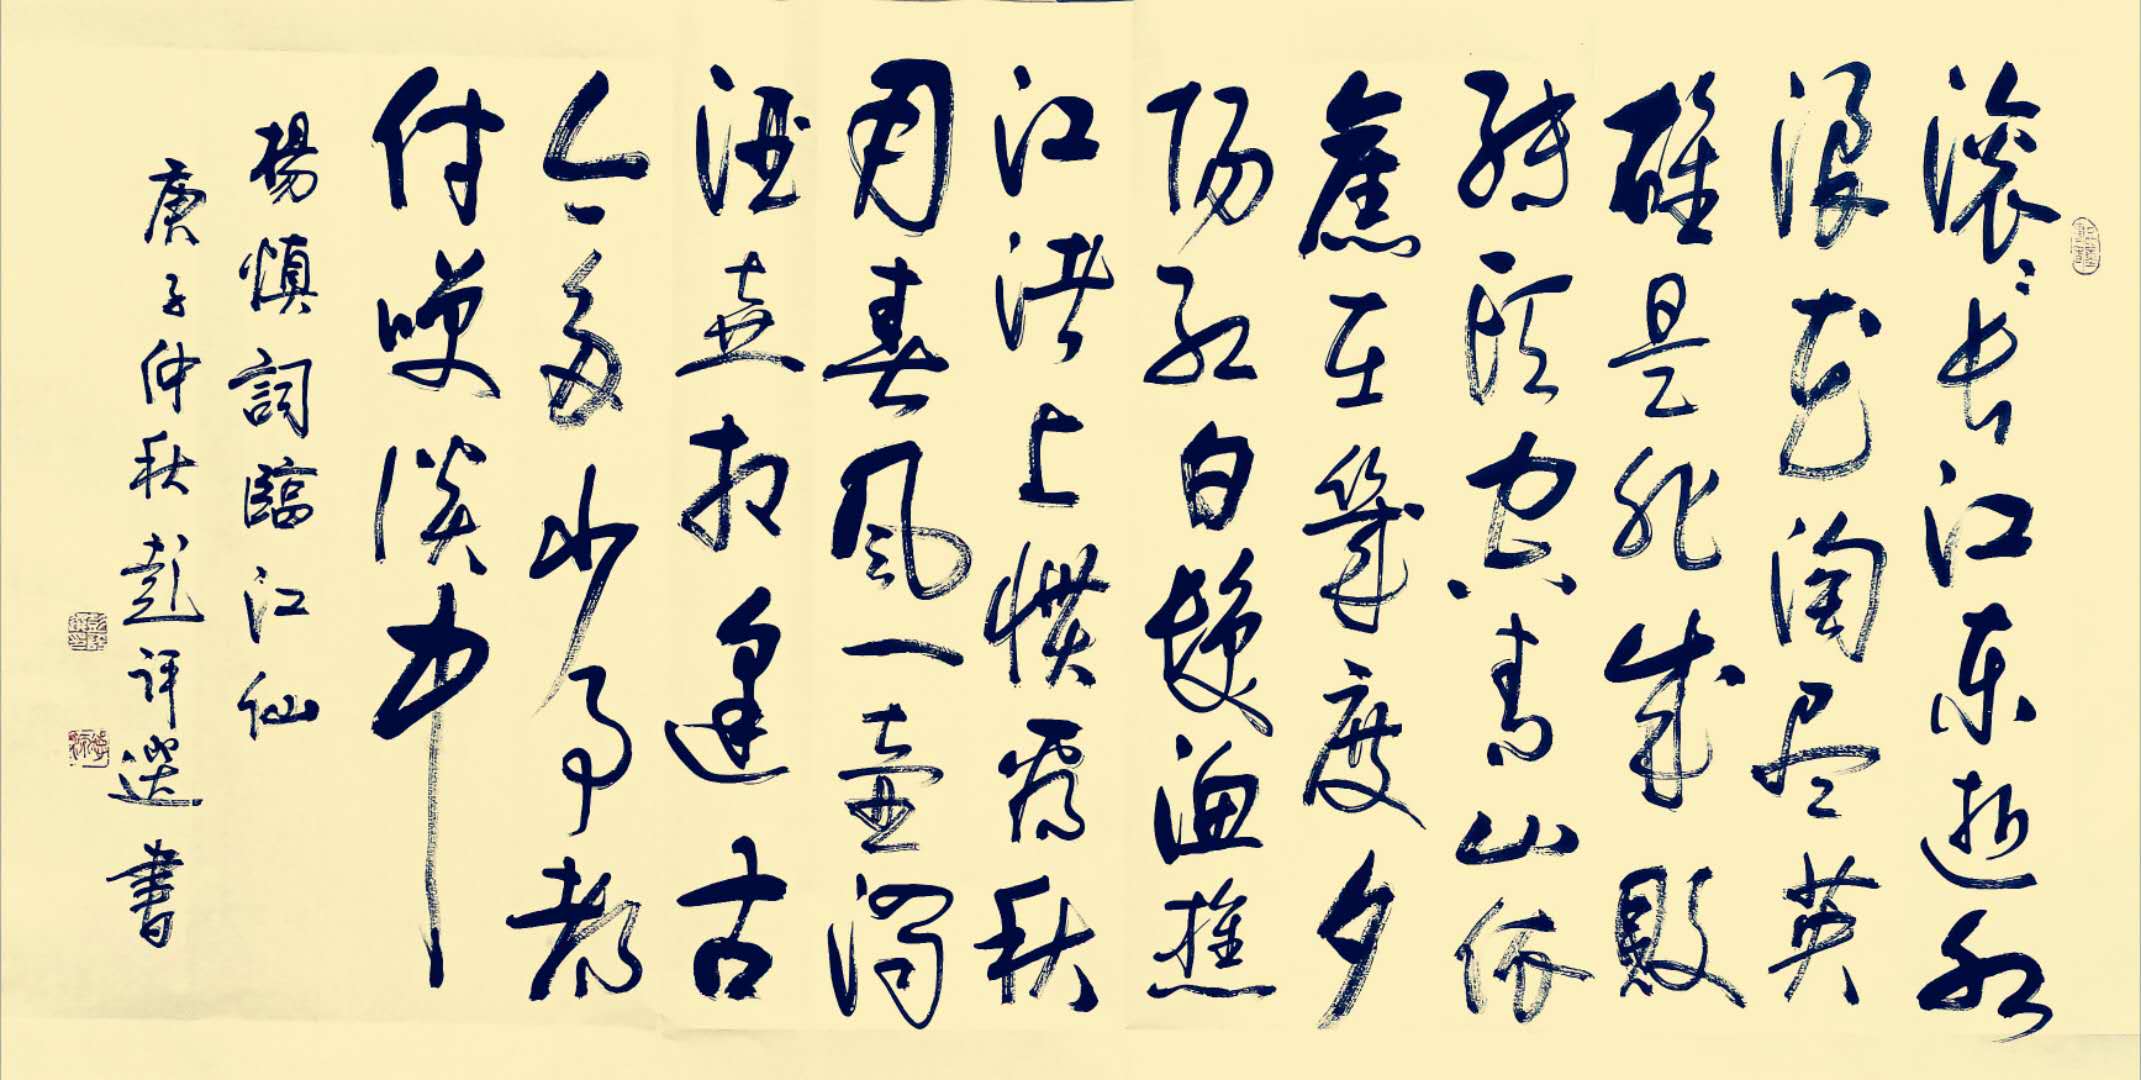 滚〻长江东逝水
浪花淘尽英
雄是非成敗
转头空青山依
舊在幾度夕
阳红白髮渔樵
江渚上惯看秋
月春风一壶浊
酒喜相逢古
今多少事都
付咲谈中
楊慎詞臨江仙
庚子仲秋彭评選書